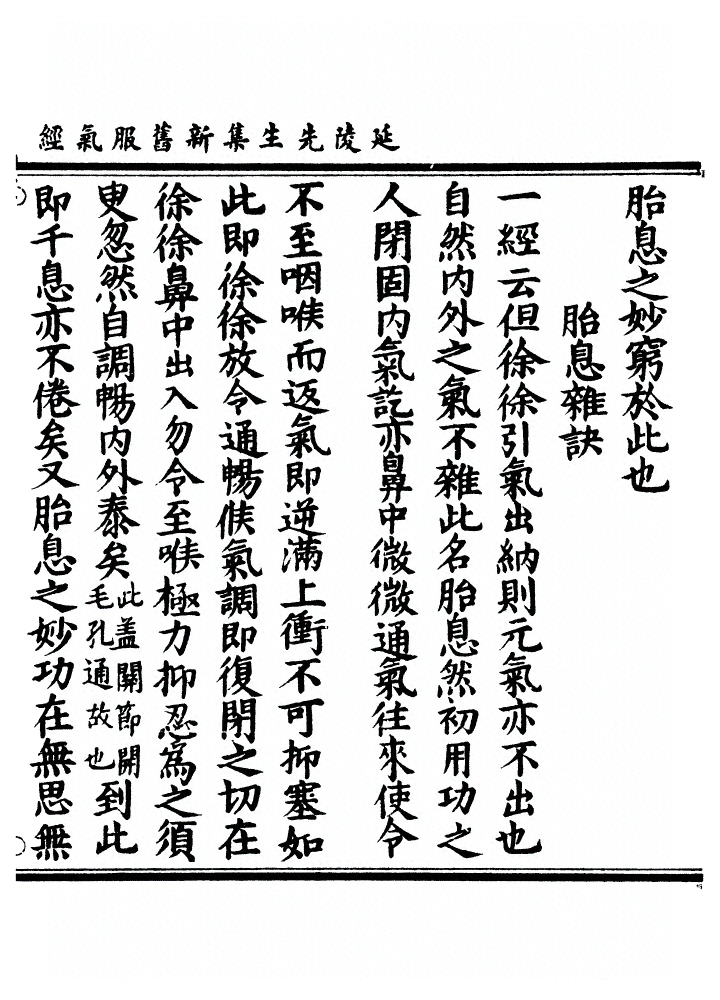 延陵先生集新舊服氣經
胎息之妙窮於此也
胎息雜訣
一經云但徐徐引氣出納則元氣亦不出也
自然內外之氣不雜此名胎息然初用功之
人閉固內氣訖亦鼻中微微通氣往來使令
不至咽喉而返氣即逆滿上衝不可抑塞如
此即徐徐放令通暢候氣調即復閉之切在
徐徐鼻中出入勿令至喉極力抑忍為之須
臾忽然自調暢內外泰矣此蓋關節開毛孔通故也到此
即千息亦不倦矣又胎息之妙功在無思無